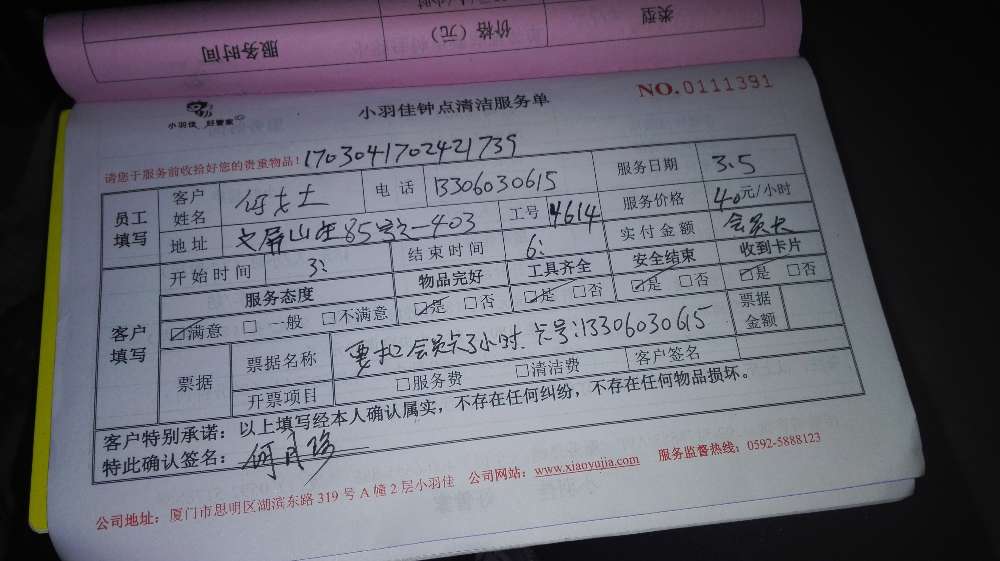 类型
价格（元）
服务时间
小羽佳 好管家
小羽佳钟点清洁服务单
NO.0111391
请您于服务前收拾好您的贵重物品！1703041702421739
员工填写
客户姓名 何女士 电话 13306030615 服务日期 3.5
地址 文屏山庄85号之一403 工号 4614 服务价格 40元/小时
客户填写
开始时间 3: 结束时间 6: 实付金额 会员卡
服务态度 物品完好 工具齐全 安全结束 收到卡片
☑满意 □一般 □不满意 ☑是 □否 ☑是 □否 ☑是 □否 ☑是 □否
票据 票据名称 要扣会员卡3小时.卡号:13306030615 票据金额
开票项目 □服务费 □清洁费 客户签名
客户特别承诺：以上填写经本人确认属实，不存在任何纠纷，不存在任何物品损坏。
特此确认签名：何月珍
公司地址：厦门市思明区湖滨东路319号A幢2层小羽佳 公司网站：www.xiaoyujia.com 服务监督热线：0592-5888123